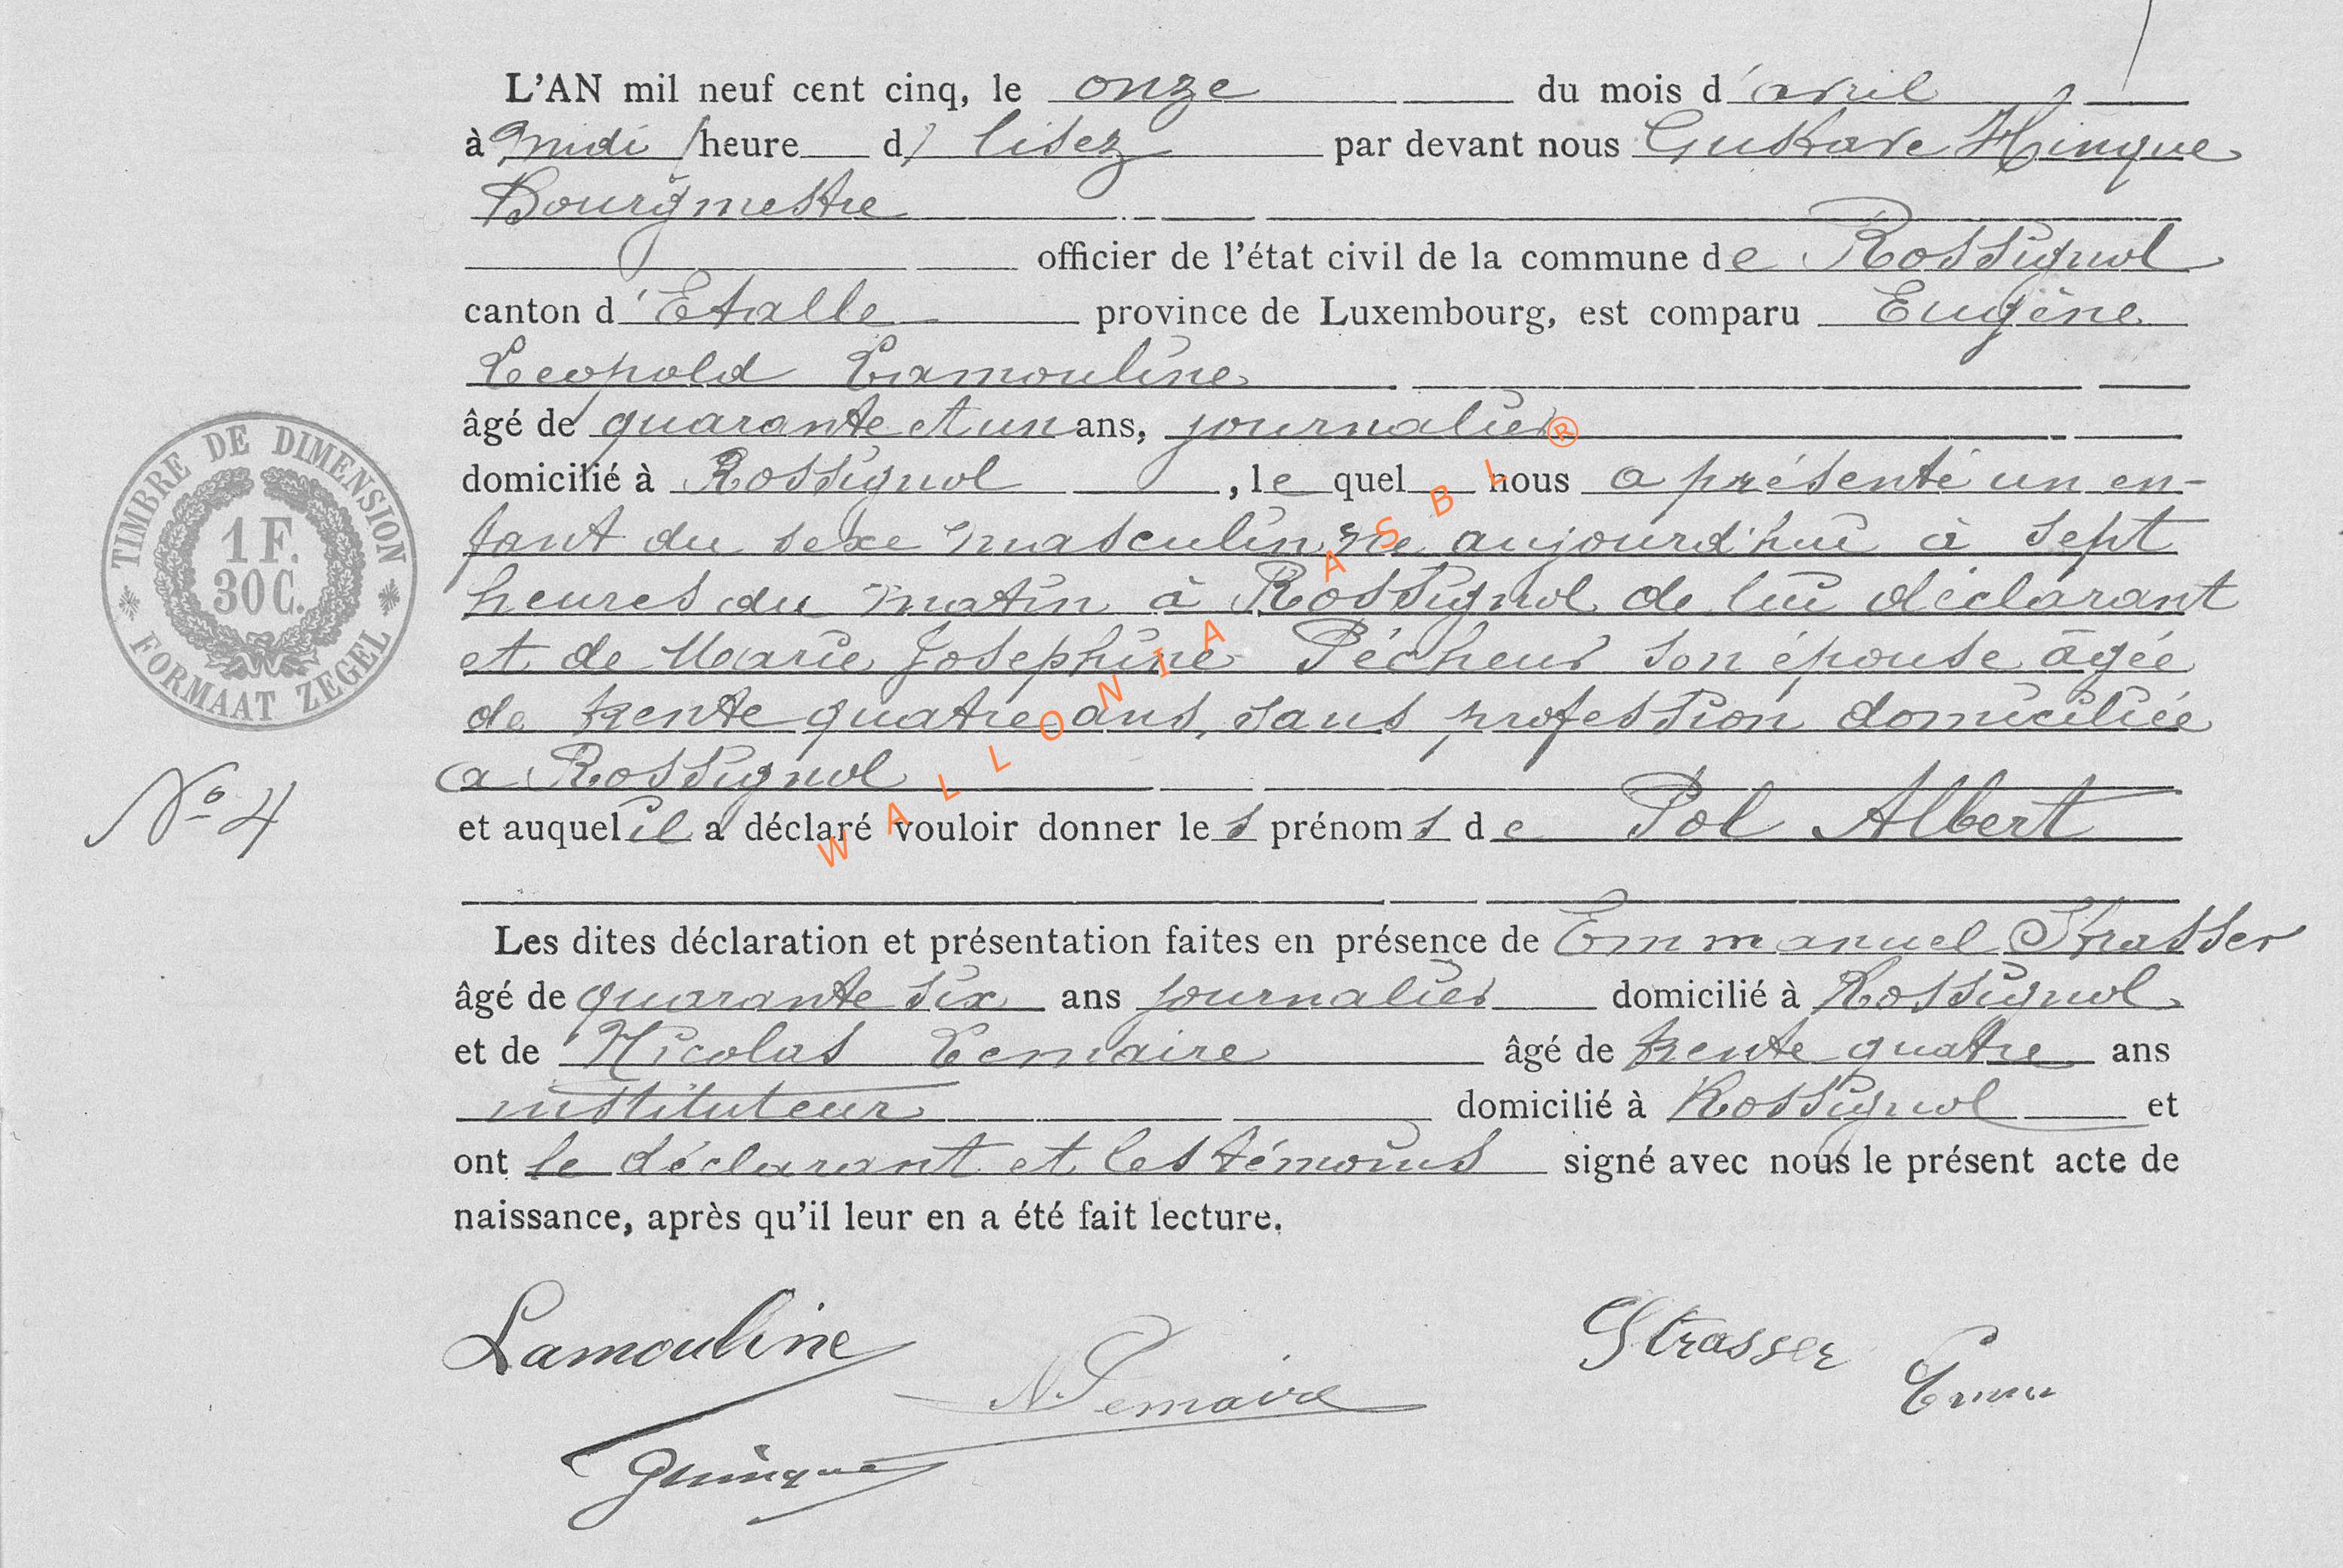 L'AN mil neuf cent cinq, le onze du mois d'avril
à midi / heure d/ lisez par devant nous Gustave Hinque
Bourgmestre
officier de l'état civil de la commune de Rossignol
canton d'Etalle province de Luxembourg, est comparu Eugène
Leopold Lamouline
âgé de quarante et un ans, journalier
domicilié à Rossignol, le quel nous a présenté un en-
fant du sexe masculin né aujourd'hui à sept
heures du matin à Rossignol de lui déclarant
et de Marie Josephine Pécheur son épouse âgée
de trente quatre ans, sans profession domiciliée
a Rossignol
et auquel il a déclaré vouloir donner les prénoms de Pol Albert
Les dites déclaration et présentation faites en présence de Emmanuel Strasser
âgé de quarante six ans journalier domicilié à Rossignol
et de Nicolas Lemaire âgé de trente quatre ans
instituteur domicilié à Rossignol et
ont le déclarant et les témoins signé avec nous le présent acte de
naissance, après qu'il leur en a été fait lecture.
TIMBRE DE DIMENSION
1 F.
30 C.
FORMAAT ZEGEL
N° 4
WALLONIA ASBL ®
Lamouline
N. Lemaire
Strasser
Emm
GHinque